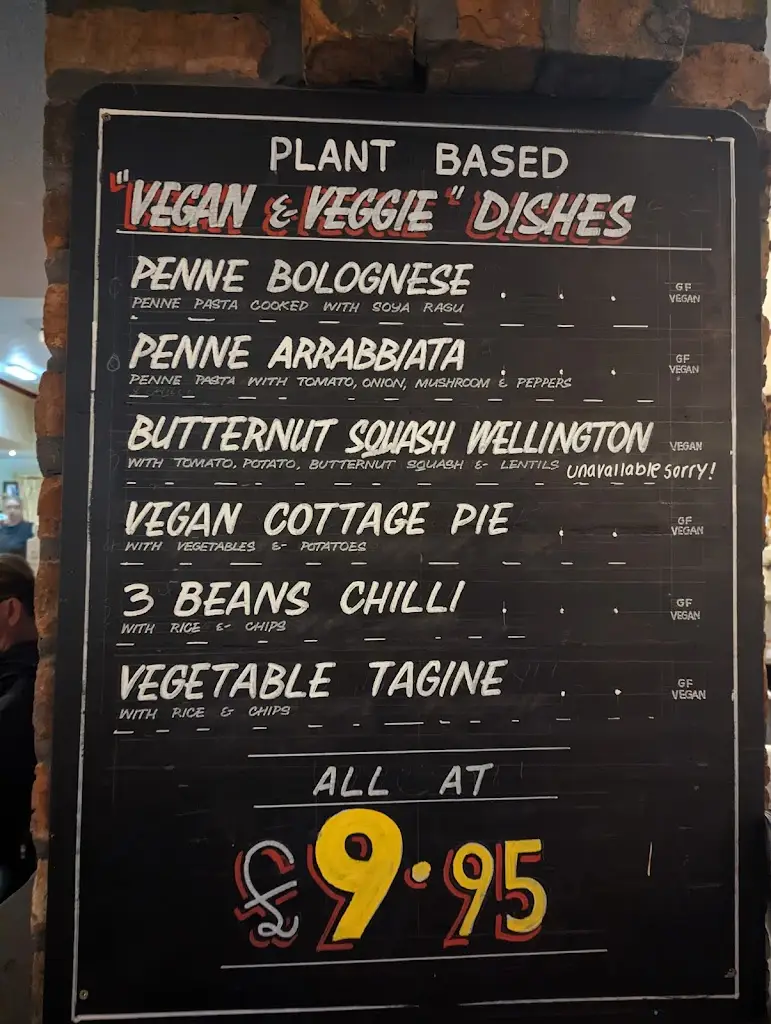 PLANT BASED
"VEGAN & VEGGIE" DISHES
PENNE BOLOGNESE . . . GF VEGAN
PENNE PASTA COOKED WITH SOYA RAGU
PENNE ARRABBIATA . . . GF VEGAN
PENNE PASTA WITH TOMATO, ONION, MUSHROOM & PEPPERS
BUTTERNUT SQUASH WELLINGTON VEGAN
WITH TOMATO, POTATO, BUTTERNUT SQUASH & LENTILS unavailable sorry!
VEGAN COTTAGE PIE . . GF VEGAN
WITH VEGETABLES & POTATOES
3 BEANS CHILLI . . . GF VEGAN
WITH RICE & CHIPS
VEGETABLE TAGINE . . GF VEGAN
WITH RICE & CHIPS
ALL AT
£9.95